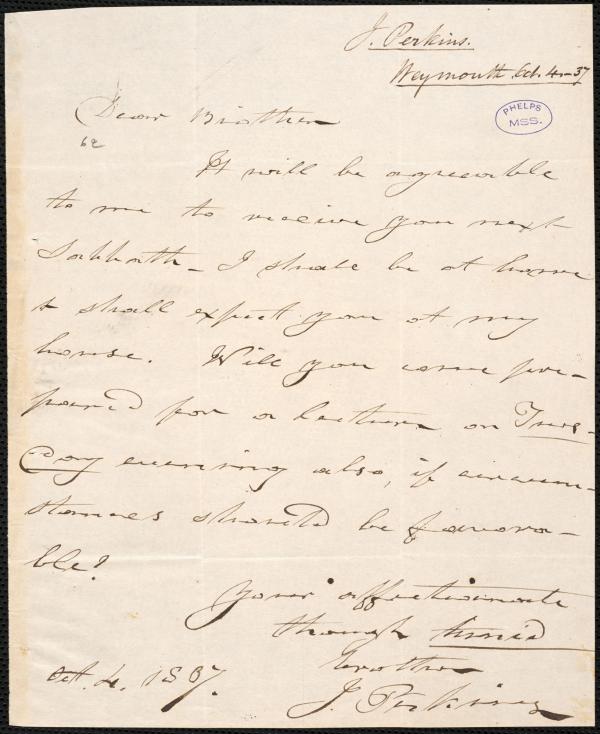 J. Perkins.
Weymouth. Oct. 4. - 37
PHELPS
MSS.
Dear Brother
62
It will be agreeable
to me to receive you next
Sabbath - I shall be at home
& shall expect you at my
house. Will you come pre-
pared for a lecture on Tues-
day evening also, if circum-
stances should be favora-
ble?
Your affectionate
though timid
brother
J. Perkins
Oct. 4. 1837.